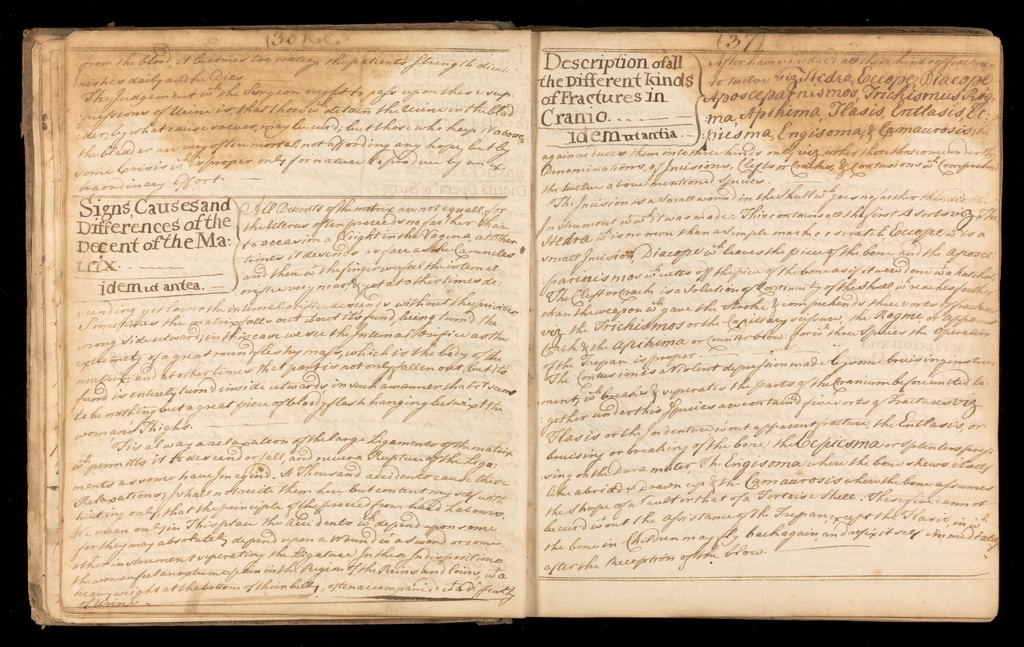 (36)
from the blood, it becomes too watery, the patients strength dimi:
nishes daily and he Dies.
The Judgement wch the Surgeon ought to pass upon these sup:
pressions of Urine is that those wch retain the Urine in the blad
der, by what cause soever, may be curd, but those who keep it above
the bladder are very often mortal, not affording any hope, but by
some Crisis wch is proper only for nature to produce by an Ex:
traordinary Effort
Signs, Causes and
Differences of the
Decent of the Ma:
trix.
idem ut antea.
All Descents of the matrix are not equall, for
the Uterus often proceeds no farther than
to occasion a Weight in the Vagina, at other
times it descends as far as the Caruncles
and then wth the finger we feel the internal
orifice very near, & yet at other times de:
scending yet lower the internal orifice descends without the privities.
Sometimes the matrix falls out about its fund, being turnd the
wrong side outward; in this case we see the Internal Orifice as the
extremity of a great round fleshy mass, which is the body of the
matrix, and at other times that part is not only fallen out, but its
fund is entirely turnd inside outwards in such a manner that it seems
to be nothing but a great piece of bloody flesh hanging betwixt the
womans Thighs.
Tis alway a relaxation of the large Ligaments of the matrix
wch permitts it to descend or fall, and never a Rupture of the Liga:
ments as some have Imagind. A Thousand accidents cause these
Relaxations, I shall not recite them here but content my self with
hinting only that the principle of them proceed from hard Labours.
We mean only in This place the Accidents wch depend upon some
for they may absolutely depend upon a Wound wth a sword or some
other instrument seperating the Ligature. In these Indispositions
the woman feels an extume pain in the Region of the Reins and Loins, wth a
heavy weight at the bottom of their belly, often accompanied wth a difficulty
of Urine.
(37)
Description of all
the Different kinds
of Fractures in
Cranio.
idem ut antia.
After have reduced all these kinds of fractures
to twelve viz Hedra, Eccope, Diacope
Aposceparnismos, Trichismus Rog:
ma, Apithima, Tlasis, Entlasis, Ec:
piesma, Engisoma, & Camaurosis; he
again reduces them into three kinds only viz either those thro some under the
Denominations, of Incisions, Clefts or Craches, & Contusions wch Comprehend
the twelve above mentiond Species.
The Incision is a small wound in the skull wch goes no farther than the
Instrument wth wch it was made: This contains all the first 4 sorts viz, The
Hedra wch is no more than a simple mark or scratch Eccope wch is a
small Incision, Diacope wch leaves the piece of the bone and the Aposce
parnismos wch cutts off the piece of the bone as if it were done wth a hatchet
The Cleft or Crach is a Solution of Continuity of the Skull wch reaches farther
than the weapon wch gave the stroke & comprehends three sorts of fractures
viz, the Trichismos or the Capillary scissure, the Rogme or apparent
Crach, & the Apihima or Counter blow. For wch three species the Operation
of the Trepan is proper.
The Contusion is a Violent depression made by some bruising instru:
ment, wch breaks & seperates the parts of the Cranium before united to:
gether under this Species are containd five sorts of Fractures viz
Tlasis or the Indenture wthout apparent fracture, the Entlasis, or
bruising or breaking of the bone, the Ecpiesma or splenters press:
sing on the dura mater. The Engisoma where the bone shews itself
like a bridge drawn up & the Camaurosis where the bone assumes
the shape of a Vault or that of a Tortoise Shell: These five cannot
be curd wthout the assistance of the Trepan, except the Tlasis, in wch
the bone in Children may fly back again and refix it self immediately
after the Reception of the blow.